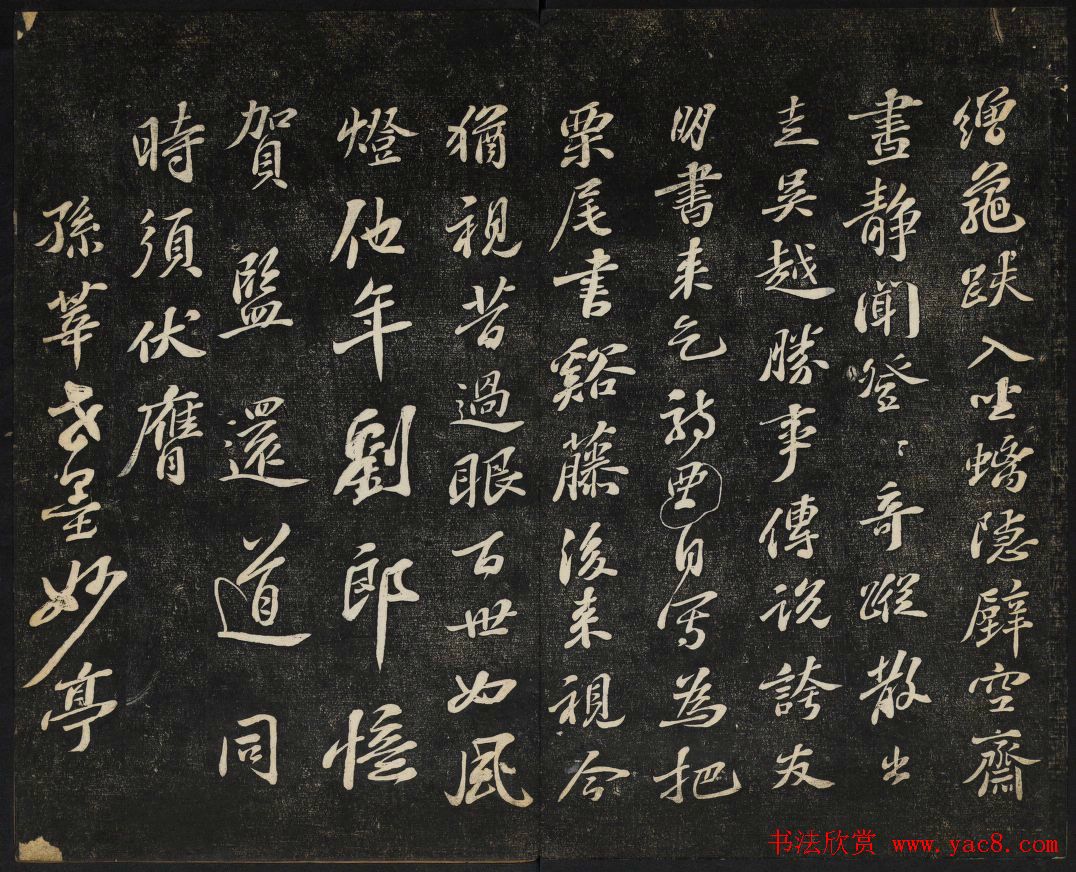 繒龜趺入坐螭隱壁空齋
晝靜聞登〻奇蹤散出
走吳越勝事傳說誇友
朋書來乞詩要自寫為把
栗尾書谿藤後來視今
猶視昔過眼百世如風
燈他年劉郎憶
賀監還道同
時須伏膺
孫莘老墨妙亭
书法欣赏 www.yac8.com